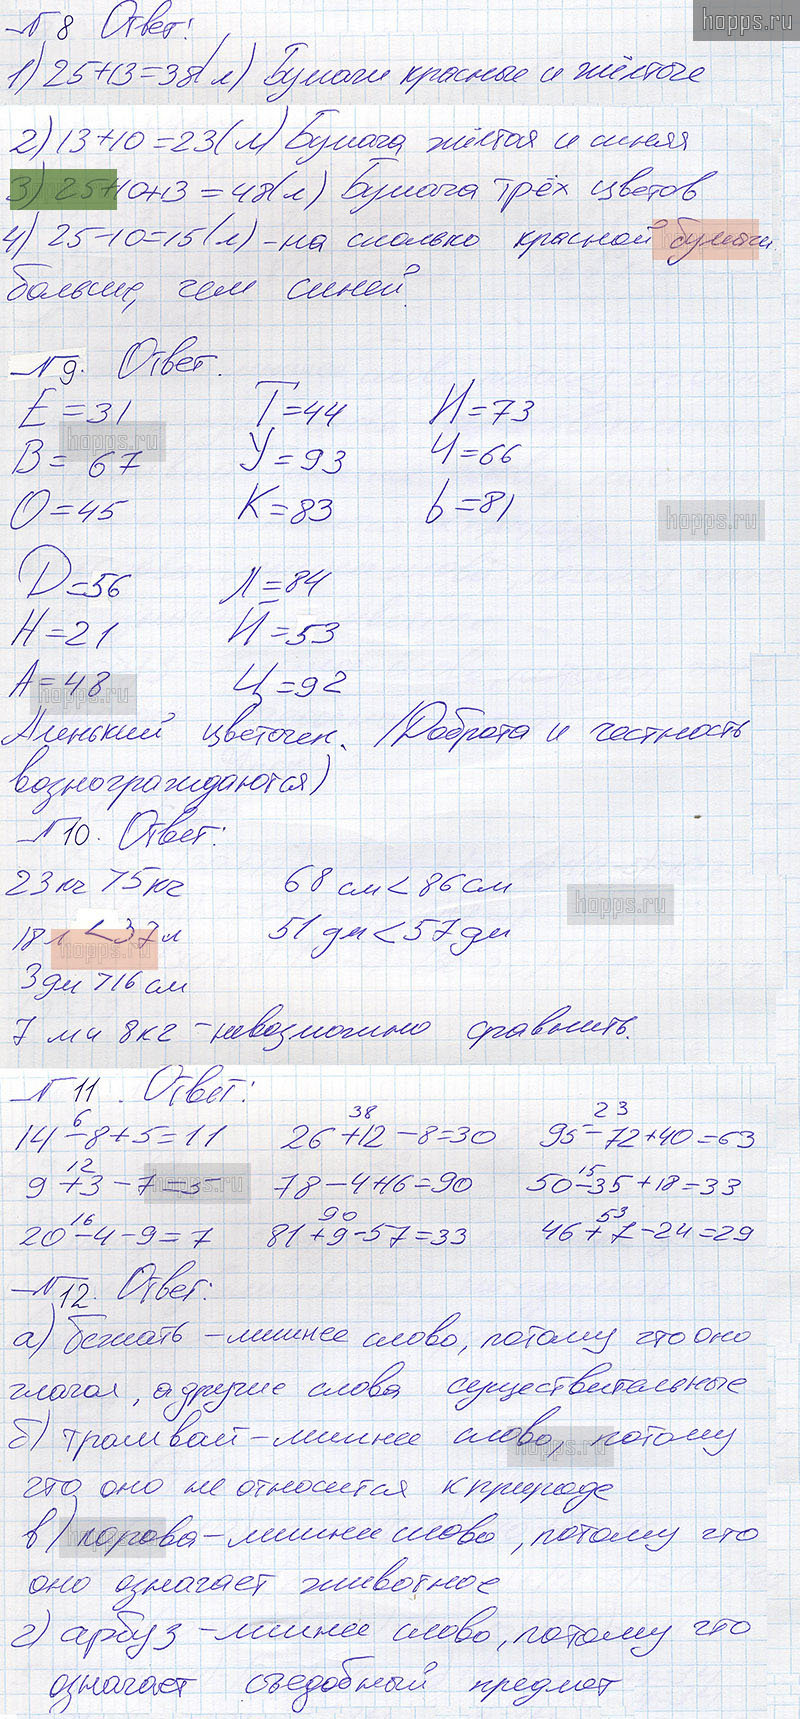 hopps.ru
№8 Ответ:
1) 25+13=38(л) Бумаги красные и жёлтые
2) 13+10=23(л) Бумага жёлтая и синяя
3) 25+10+13=48(л) Бумага трёх цветов
4) 25-10=15(л) - на сколько красной бумаги
больше, чем синей.
№9. Ответ.
Е=31 Т=44 И=73
hopps.ru
В=67 У=93 Ч=66
О=45 К=83 Ь=81
hopps.ru
Д=56 Л=84
Н=21 Й=53
А=48 Ц=92
hopps.ru
Аленький цветочек. (Доброта и честность
вознограждаются)
№10. Ответ:
23кг>5кг 68см<86см
hopps.ru
18л<37л 51дм<57дм
hopps.ru
3дм>16см
7м и 8кг - невозможно сравнить.
№11. Ответ:
6 38 23
14-8+5=11 26+12-8=30 95-72+40=63
12 15
9+3-7=5 78-4+16=90 50-35+18=33
hopps.ru
16 90 53
20-4-9=7 81+9-57=33 46+7-24=29
№12. Ответ:
а) бежать - лишнее слово, потому что оно
глагол, а другие слова существительные
б) трамвай - лишнее слово, потому
hopps.ru
что оно не относится к природе
в) корова - лишнее слово, потому что
hopps.ru
оно означает животное
г) арбуз - лишнее слово, потому что
означает съедобный предмет